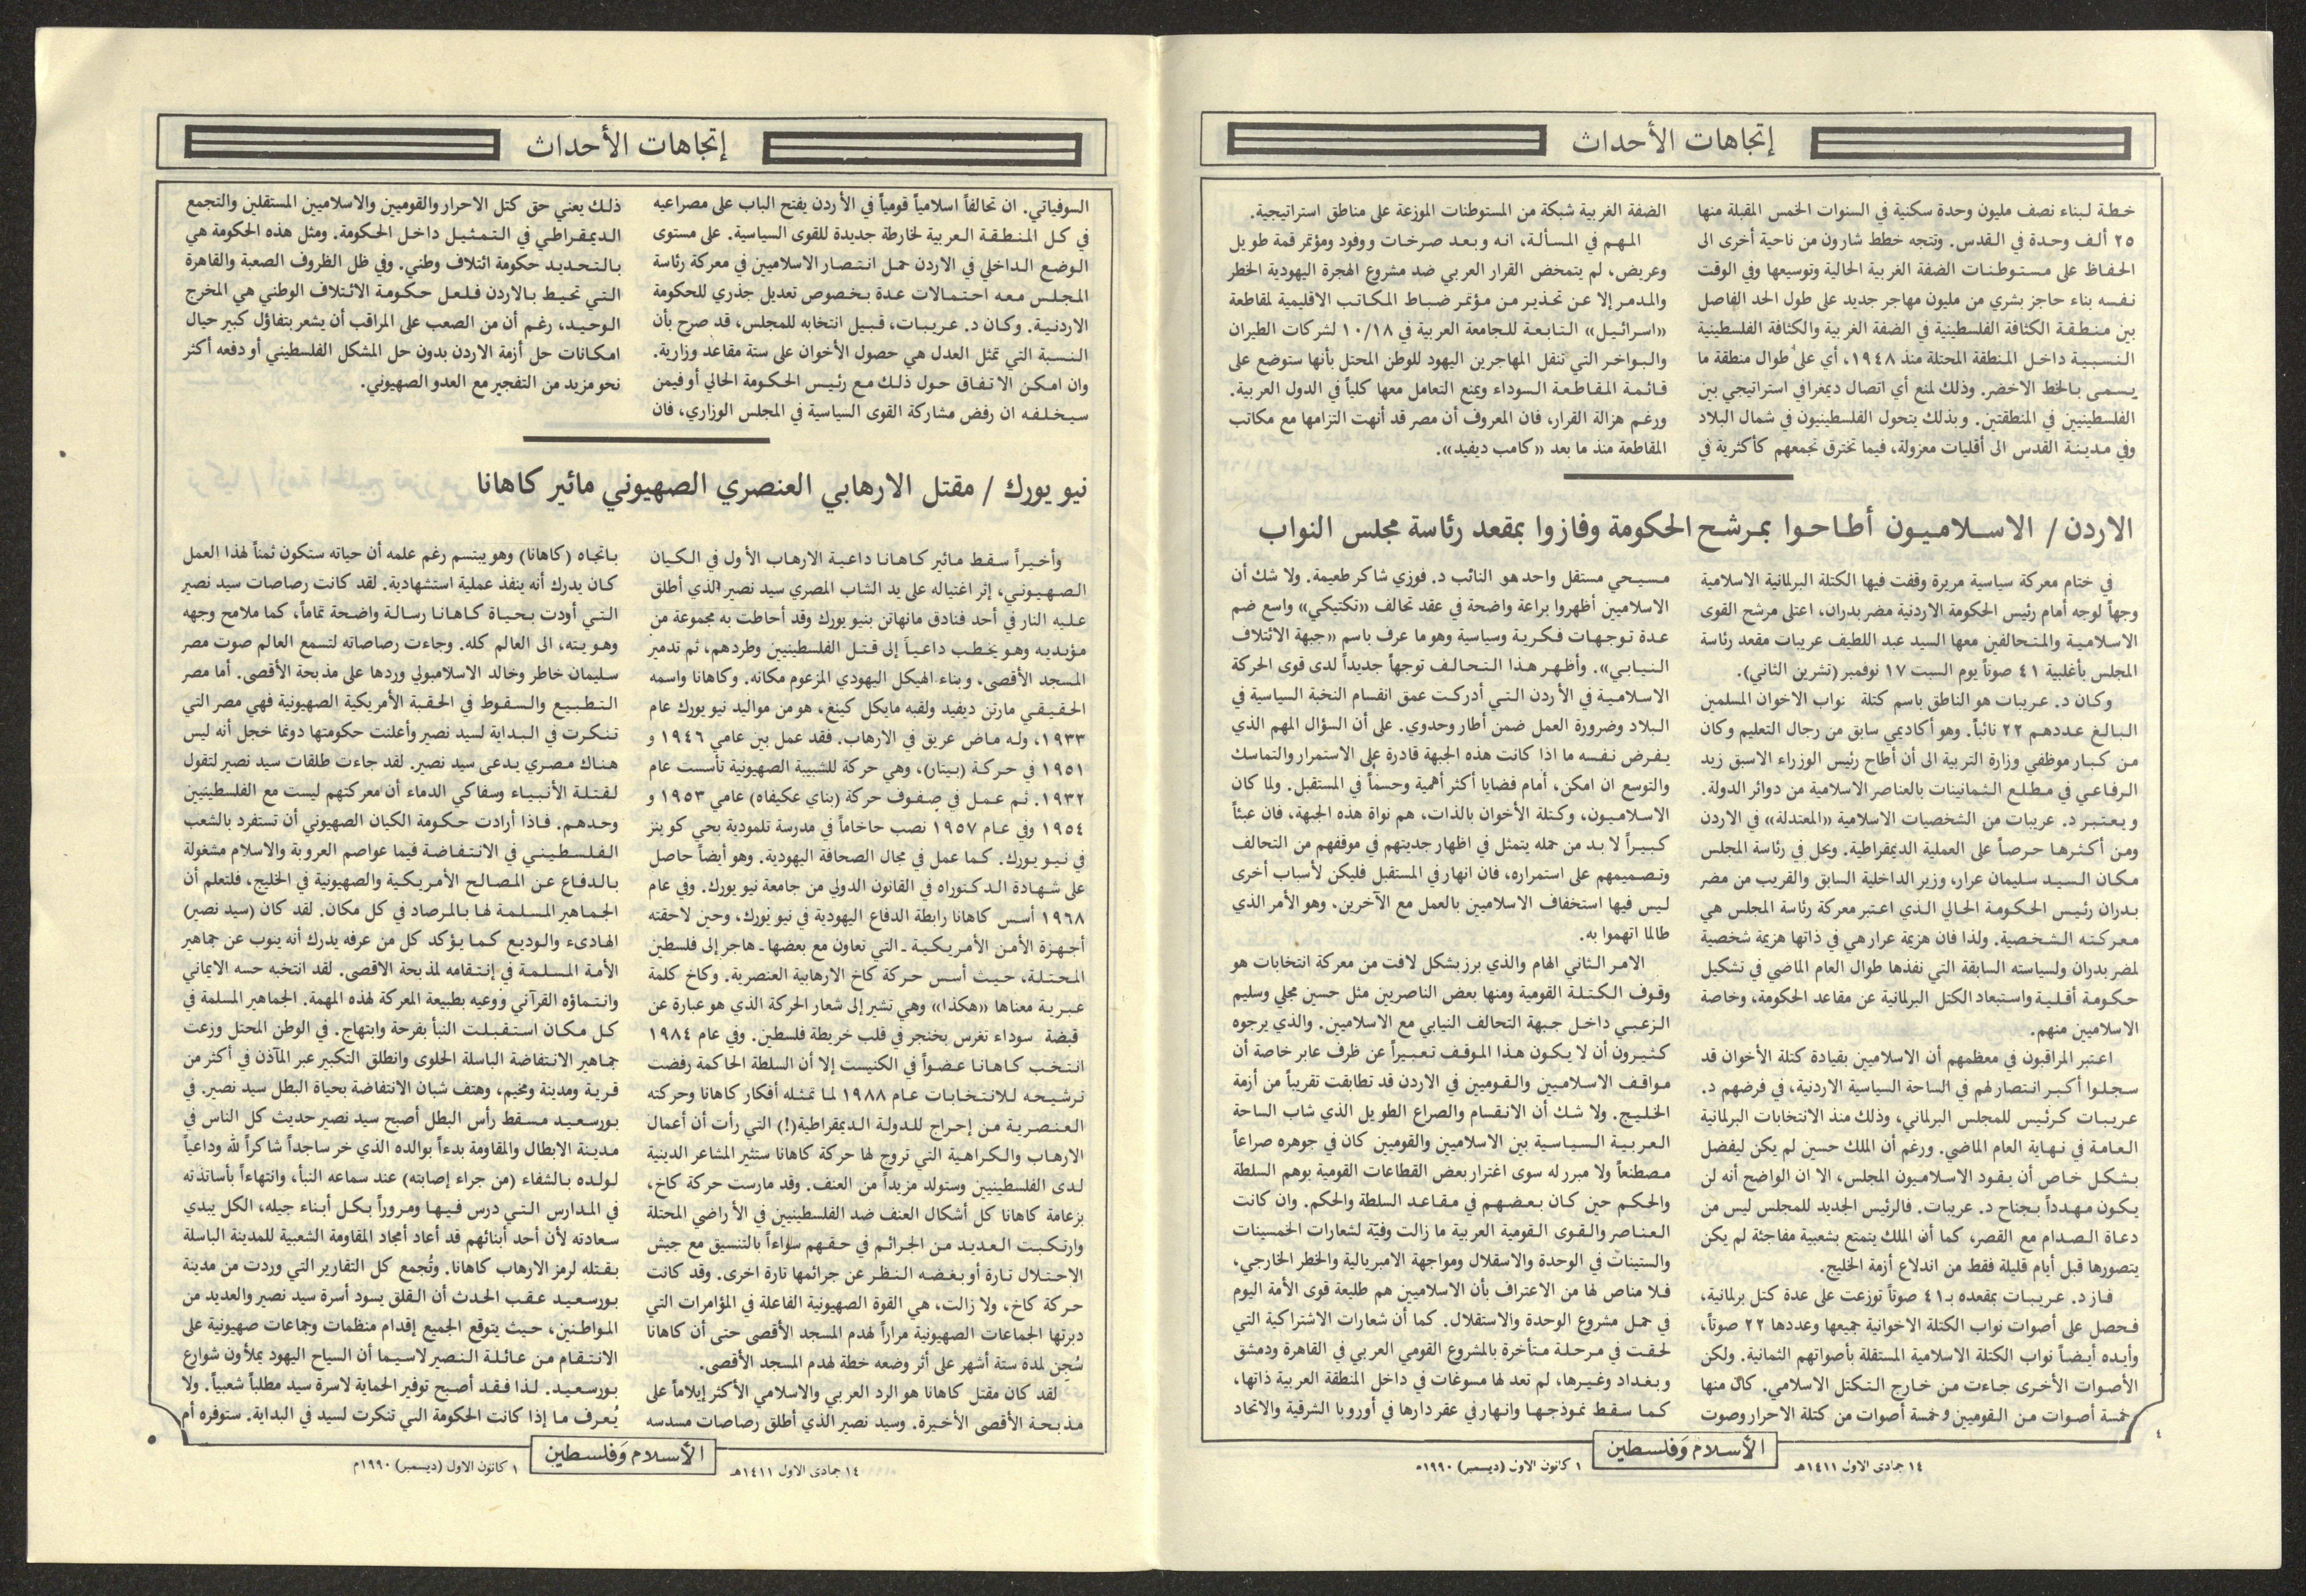 إتجاهات الأحداث
خطة لبناء نصف مليون وحدة سكنية في السنوات الخمس المقبلة منها
٢٥ ألف وحدة في القدس. وتتجه خطط شارون من ناحية أخرى الى
الحفاظ على مستوطنات الضفة الغربية الحالية وتوسيعها وفي الوقت
نفسه بناء حاجز بشري من مليون مهاجر جديد على طول الحد الفاصل
بين منطقة الكثافة الفلسطينية في الضفة الغربية والكثافة الفلسطينية
النسبية داخل المنطقة المحتلة منذ ١٩٤٨، أي على طوال منطقة ما
يسمى بالخط الاخضر. وذلك لمنع أي اتصال ديمغرافي استراتيجي بين
الفلسطينيين في المنطقتين. وبذلك يتحول الفلسطينيون في شمال البلاد
وفي مدينة القدس الى أقليات معزولة، فيما تخترق تجمعهم كأكثرية في
الضفة الغربية شبكة من المستوطنات الموزعة على مناطق استراتيجية.
المهم في المسألة، انه وبعد صرخات ووفود ومؤتمر قمة طويل
وعريض، لم يتمخض القرار العربي ضد مشروع الهجرة اليهودية الخطر
والمدمر إلا عن تحذير من مؤتمر ضباط المكاتب الاقليمية لمقاطعة
«اسرائيل» التابعة للجامعة العربية في ١٠/١٨ لشركات الطيران
والبواخر التي تنقل المهاجرين اليهود للوطن المحتل بأنها ستوضع على
قائمة المقاطعة السوداء ويمنع التعامل معها كلياً في الدول العربية.
ورغم هزالة القرار، فان المعروف أن مصر قد أنهت التزامها مع مكاتب
المقاطعة منذ ما بعد «كامب ديفيد».
الاردن / الاسلاميون أطاحوا بمرشح الحكومة وفازوا بمقعد رئاسة مجلس النواب
في ختام معركة سياسية مريرة وقفت فيها الكتلة البرلمانية الاسلامية
وجهاً لوجه أمام رئيس الحكومة الاردنية مضر بدران، اعتلى مرشح القوى
الاسلامية والمتحالفين معها السيد عبد اللطيف عربيات مقعد رئاسة
المجلس بأغلبية ٤١ صوتاً يوم السبت ١٧ نوفمبر (تشرين الثاني).
وكان د. عربيات هو الناطق باسم كتلة نواب الاخوان المسلمين
البالغ عددهم ٢٢ نائباً. وهو أكاديمي سابق من رجال التعليم وكان
من كبار موظفي وزارة التربية الى أن أطاح رئيس الوزراء الاسبق زيد
الرفاعي في مطلع الثمانينات بالعناصر الاسلامية من دوائر الدولة.
ويعتبر د. عربيات من الشخصيات الاسلامية «المعتدلة» في الاردن
ومن أكثرها حرصاً على العملية الديمقراطية. ويحل في رئاسة المجلس
مكان السيد سليمان عرار، وزير الداخلية السابق والقريب من مضر
بدران رئيس الحكومة الحالي الذي اعتبر معركة رئاسة المجلس هي
معركته الشخصية. ولذا فان هزيمة عرار هي في ذاتها هزيمة شخصية
لمضر بدران ولسياسته السابقة التي نفذها طوال العام الماضي في تشكيل
حكومة أقلية واستبعاد الكتل البرلمانية عن مقاعد الحكومة، وخاصة
الاسلاميين منهم.
اعتبر المراقبون في معظمهم أن الاسلاميين بقيادة كتلة الأخوان قد
سجلوا أكبر انتصار لهم في الساحة السياسية الاردنية، في فرضهم د.
عربيات كرئيس للمجلس البرلماني، وذلك منذ الانتخابات البرلمانية
العامة في نهاية العام الماضي. ورغم أن الملك حسين لم يكن ليفضل
بشكل خاص أن يقود الاسلاميون المجلس، الا ان الواضح أنه لن
يكون مهدداً بجناح د. عربيات. فالرئيس الجديد للمجلس ليس من
دعاة الصدام مع القصر، كما أن الملك يتمتع بشعبية مفاجئة لم يكن
يتصورها قبل أيام قليلة فقط من اندلاع أزمة الخليج.
فاز د. عربيات بمقعده بـ٤١ صوتاً توزعت على عدة كتل برلمانية،
فحصل على أصوات نواب الكتلة الاخوانية جميعها وعددها ٢٢ صوتاً،
وأيده أيضاً نواب الكتلة الاسلامية المستقلة بأصواتهم الثمانية. ولكن
الأصوات الأخرى جاءت من خارج التكتل الاسلامي. كان منها
خمسة أصوات من القوميين وخمسة أصوات من كتلة الاحرار وصوت
مسيحي مستقل واحد هو النائب د. فوزي شاكر طعيمة. ولا شك أن
الاسلاميين أظهروا براعة واضحة في عقد تحالف «تكتيكي» واسع ضم
عدة توجهات فكرية وسياسية وهو ما عرف باسم «جبهة الائتلاف
النيابي». وأظهر هذا التحالف توجهاً جديداً لدى قوى الحركة
الاسلامية في الأردن التي أدركت عمق انقسام النخبة السياسية في
البلاد وضرورة العمل ضمن أطار وحدوي. على أن السؤال المهم الذي
يفرض نفسه ما اذا كانت هذه الجبهة قادرة على الاستمرار والتماسك
والتوسع ان امكن، أمام قضايا أكثر أهمية وحسماً في المستقبل. ولما كان
الاسلاميون، وكتلة الأخوان بالذات، هم نواة هذه الجبهة، فان عبئاً
كبيراً لا بد من حمله يتمثل في اظهار جديتهم في موقفهم من التحالف
وتصميمهم على استمراره، فان انهار في المستقبل فليكن لأسباب أخرى
ليس فيها استخفاف الاسلاميين بالعمل مع الآخرين، وهو الأمر الذي
طالما اتهموا به.
الامر الثاني الهام والذي برز بشكل لافت من معركة انتخابات هو
وقوف الكتلة القومية ومنها بعض الناصريين مثل حسين مجلي وسليم
الزعبي داخل جبهة التحالف النيابي مع الاسلاميين. والذي يرجوه
كثيرون أن لا يكون هذا الموقف تعبيراً عن ظرف عابر خاصة أن
مواقف الاسلاميين والقوميين في الاردن قد تطابقت تقريباً من أزمة
الخليج. ولا شك أن الانقسام والصراع الطويل الذي شاب الساحة
العربية السياسية بين الاسلاميين والقوميين كان في جوهره صراعاً
مصطنعاً ولا مبرر له سوى اغترار بعض القطاعات القومية بوهم السلطة
والحكم حين كان بعضهم في مقاعد السلطة والحكم. وان كانت
العناصر والقوى القومية العربية ما زالت وفيّة لشعارات الخمسينات
والستينات في الوحدة والاسقلال ومواجهة الامبريالية والخطر الخارجي،
فلا مناص لها من الاعتراف بأن الاسلاميين هم طليعة قوى الأمة اليوم
في حمل مشروع الوحدة والاستقلال. كما أن شعارات الاشتراكية التي
لحقت في مرحلة متأخرة بالمشروع القومي العربي في القاهرة ودمشق
وبغداد وغيرها، لم تعد لها مسوغات في داخل المنطقة العربية ذاتها،
كما سقط نموذجها وانهار في عقر دارها في أوروبا الشرقية والاتحاد
٤
١٤ جمادى الاول ١٤١١هـ
الأسلام وَفلسطين
١ كانون الاول (ديسمبر) ١٩٩٠م
إتجاهات الأحداث
السوفياتي. ان تحالفاً اسلامياً قومياً في الأردن يفتح الباب على مصراعيه
في كل المنطقة العربية لخارطة جديدة للقوى السياسية. على مستوى
الوضع الداخلي في الاردن حمل انتصار الاسلاميين في معركة رئاسة
المجلس معه احتمالات عدة بخصوص تعديل جذري للحكومة
الاردنية. وكان د. عربيات، قبيل انتخابه للمجلس، قد صرح بأن
النسبة التي تمثل العدل هي حصول الأخوان على ستة مقاعد وزارية.
وان امكن الاتفاق حول ذلك مع رئيس الحكومة الحالي أو فيمن
سيخلفه ان رفض مشاركة القوى السياسية في المجلس الوزاري، فان
ذلك يعني حق كتل الاحرار والقوميين والاسلاميين المستقلين والتجمع
الديمقراطي في التمثيل داخل الحكومة. ومثل هذه الحكومة هي
بالتحديد حكومة ائتلاف وطني. وفي ظل الظروف الصعبة والقاهرة
التي تحيط بالاردن فلعل حكومة الائتلاف الوطني هي المخرج
الوحيد، رغم أن من الصعب على المراقب أن يشعر بتفاؤل كبير حيال
امكانات حل أزمة الاردن بدون حل المشكل الفلسطيني أو دفعه أكثر
نحو مزيد من التفجير مع العدو الصهيوني.
نيويورك / مقتل الارهابي العنصري الصهيوني مائير كاهانا
وأخيراً سقط مائير كاهانا داعية الارهاب الأول في الكيان
الصهيوني، إثر اغتياله على يد الشاب المصري سيد نصير الذي أطلق
عليه النار في أحد فنادق مانهاتن بنيويورك وقد أحاطت به مجموعة من
مؤيديه وهو يخطب داعياً إلى قتل الفلسطينيين وطردهم، ثم تدمير
المسجد الأقصى، وبناء الهيكل اليهودي المزعوم مكانه. وكاهانا واسمه
الحقيقي مارتن ديفيد ولقبه مايكل كينغ، هو من مواليد نيويورك عام
١٩٣٣، وله ماض عريق في الارهاب. فقد عمل بين عامي ١٩٤٦ و
١٩٥١ في حركة (بيتار)، وهي حركة للشبيبة الصهيونية تأسست عام
١٩٣٢. ثم عمل في صفوف حركة (بناي عكيفاه) عامي ١٩٥٣ و
١٩٥٤ وفي عام ١٩٥٧ نصب حاخاماً في مدرسة تلمودية بحي كوينز
في نيويورك. كما عمل في مجال الصحافة اليهودية. وهو أيضاً حاصل
على شهادة الدكتوراه في القانون الدولي من جامعة نيويورك. وفي عام
١٩٦٨ أسس كاهانا رابطة الدفاع اليهودية في نيويورك، وحين لاحقته
أجهزة الأمن الأمريكية ـ التي تعاون مع بعضها ـ هاجر إلى فلسطين
المحتلة، حيث أسس حركة كاخ الارهابية العنصرية. وكاخ كلمة
عبرية معناها «هكذا» وهي تشير إلى شعار الحركة الذي هو عبارة عن
قبضة سوداء تغرس بخنجر في قلب خريطة فلسطين. وفي عام ١٩٨٤
انتخب كاهانا عضواً في الكنيست إلا أن السلطة الحاكمة رفضت
ترشيحه للانتخابات عام ١٩٨٨ لما تمثله أفكار كاهانا وحركته
العنصرية من إحراج للدولة الديمقراطية(!) التي رأت أن أعمال
الارهاب والكراهية التي تروج لها حركة كاهانا ستثير المشاعر الدينية
لدى الفلسطينيين وستولد مزيداً من العنف. وقد مارست حركة كاخ،
بزعامة كاهانا كل أشكال العنف ضد الفلسطينيين في الأراضي المحتلة
وارتكبت العديد من الجرائم في حقهم سواءاً بالتنسيق مع جيش
الاحتلال تارة أو بغضه النظر عن جرائمها تارة اخرى. وقد كانت
حركة كاخ، ولا زالت، هي القوة الصهيونية الفاعلة في المؤامرات التي
دبرتها الجماعات الصهيونية مراراً لهدم المسجد الأقصى حتى أن كاهانا
سُجن لمدة ستة أشهر على أثر وضعه خطة لهدم المسجد الأقصى.
لقد كان مقتل كاهانا هو الرد العربي والاسلامي الأكثر إيلاماً على
مذبحة الأقصى الأخيرة. وسيد نصير الذي أطلق رصاصات مسدسه
باتجاه (كاهانا) وهو يبتسم رغم علمه أن حياته ستكون ثمناً لهذا العمل
كان يدرك أنه ينفذ عملية استشهادية. لقد كانت رصاصات سيد نصير
التي أودت بحياة كاهانا رسالة واضحة تماماً، كما ملامح وجهه
وهويته، الى العالم كله. وجاءت رصاصاته لتسمع العالم صوت مصر
سليمان خاطر وخالد الاسلامبولي وردها على مذبحة الأقصى. أما مصر
التطبيع والسقوط في الحقبة الأمريكية الصهيونية فهي مصر التي
تنكرت في البداية لسيد نصير وأعلنت حكومتها دونما خجل أنه ليس
هناك مصري يدعى سيد نصير. لقد جاءت طلقات سيد نصير لتقول
لقتلة الأنبياء وسفاكي الدماء أن معركتهم ليست مع الفلسطينيين
وحدهم. فاذا أرادت حكومة الكيان الصهيوني أن تستفرد بالشعب
الفلسطيني في الانتفاضة فيما عواصم العروبة والاسلام مشغولة
بالدفاع عن المصالح الأمريكية والصهيونية في الخليج، فلتعلم أن
الجماهير المسلمة لها بالمرصاد في كل مكان. لقد كان (سيد نصير)
الهادىء والوديع كما يؤكد كل من عرفه يدرك أنه ينوب عن جماهير
الأمة المسلمة في إنتقامه لمذبحة الاقصى. لقد انتخبه حسه الايماني
وانتماؤه القرآني ووعيه بطبيعة المعركة لهذه المهمة. الجماهير المسلمة في
كل مكان استقبلت النبأ بفرحة وابتهاج. في الوطن المحتل وزعت
جماهير الانتفاضة الباسلة الحلوى وانطلق التكبير عبر المآذن في أكثر من
قرية ومدينة ومخيم، وهتف شبان الانتفاضة بحياة البطل سيد نصير. في
بورسعيد مسقط رأس البطل أصبح سيد نصير حديث كل الناس في
مدينة الابطال والمقاومة بدءاً بوالده الذي خر ساجداً شاكراً لله وداعياً
لولده بالشفاء (من جراء إصابته) عند سماعه النبأ، وانتهاءاً بأساتذته
في المدارس التي درس فيها ومروراً بكل أبناء جيله، الكل يبدي
سعادته لأن أحد أبنائهم قد أعاد أمجاد المقاومة الشعبية للمدينة الباسلة
بقتله لرمز الارهاب كاهانا. وتُجمع كل التقارير التي وردت من مدينة
بورسعيد عقب الحدث أن القلق يسود أسرة سيد نصير والعديد من
المواطنين، حيث يتوقع الجميع إقدام منظمات وجماعات صهيونية على
الانتقام من عائلة النصير لاسيما أن السياح اليهود يملأون شوارع
بورسعيد. لذا فقد أصبح توفير الحماية لاسرة سيد مطلباً شعبياً. ولا
يُعرف ما إذا كانت الحكومة التي تنكرت لسيد في البداية. ستوفره أم
١٤ جمادى الاول ١٤١١هـ
الأسلام وَفلسطين
١ كانون الاول (ديسمبر) ١٩٩٠م